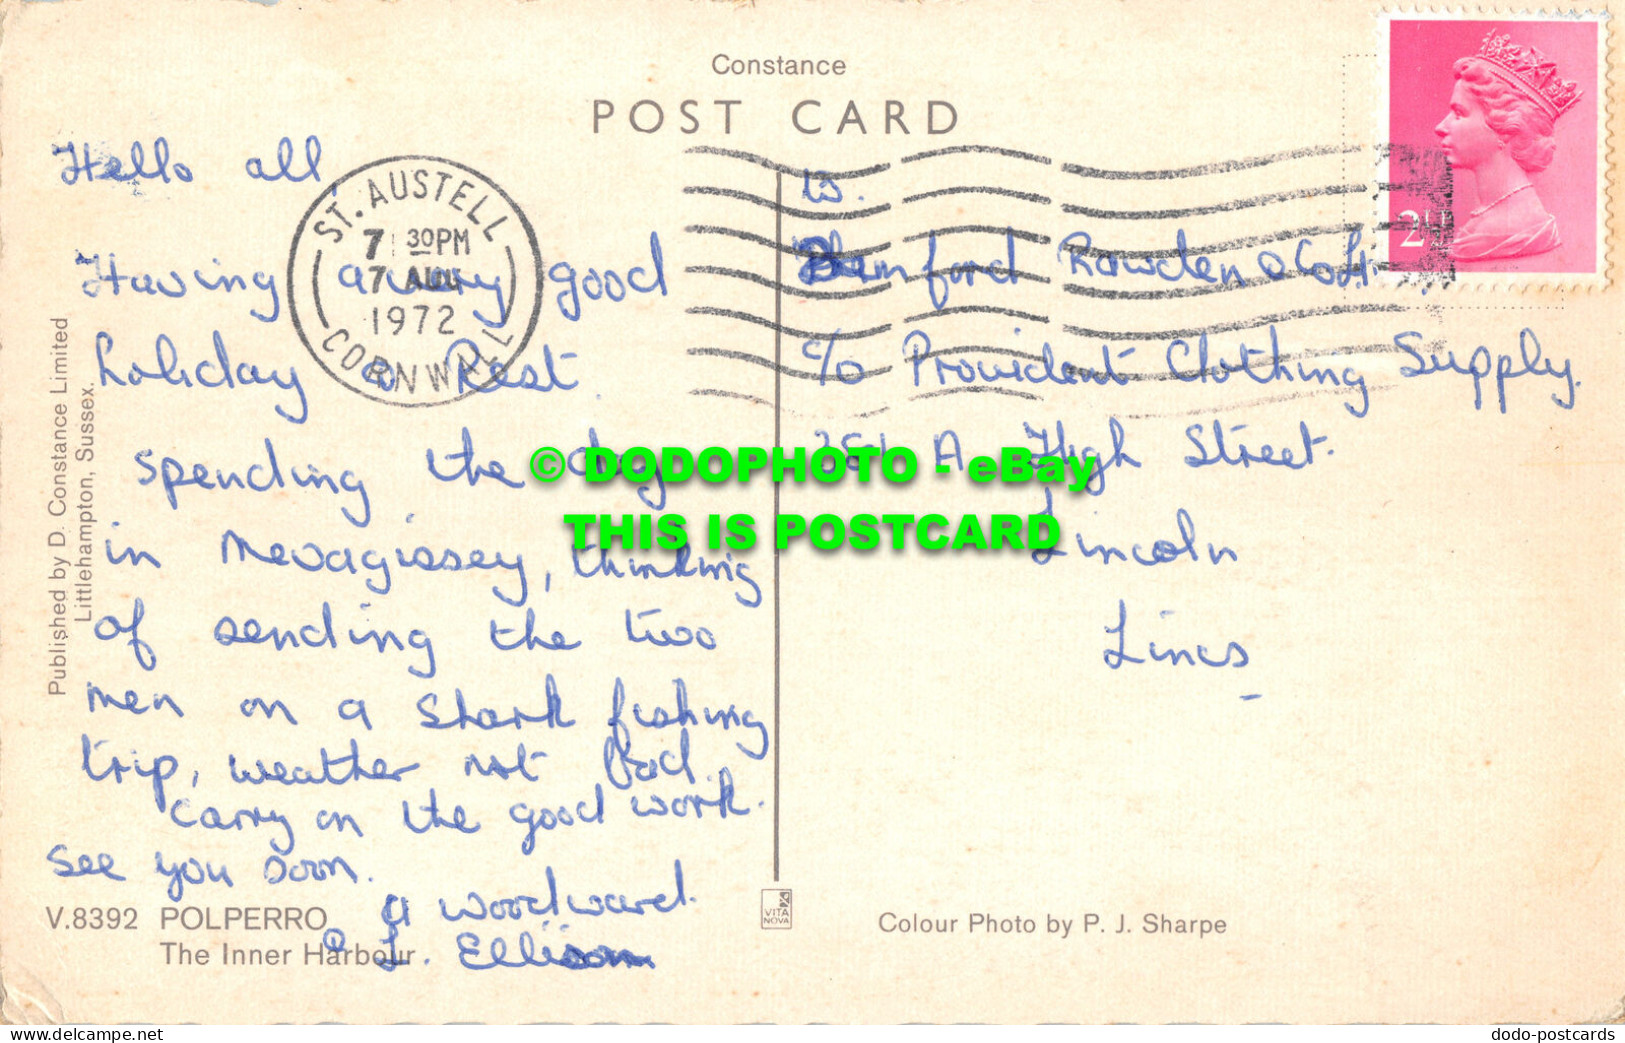 Constance
POST CARD
Hello all,
Having a very good
holiday & Rest.
spending the day
in Mevagissey, thinking
of sending the two
men on a shark fishing
trip, weather not bad.
carry on the good work.
see you soon.
a woodward.
& L. Ellison
ST. AUSTELL
7 30PM
7 AUG
1972
CORNWALL
W.
Bamford Rawden & Co Lt.
c/o Provident Clothing Supply.
A High Street.
Lincoln
Lincs
Published by D. Constance Limited
Littlehampton, Sussex.
V.8392 POLPERRO
The Inner Harbour
VITA
NOVA
Colour Photo by P. J. Sharpe
© DODOPHOTO - eBay
THIS IS POSTCARD
dodo-photo.com
dodo-postcards